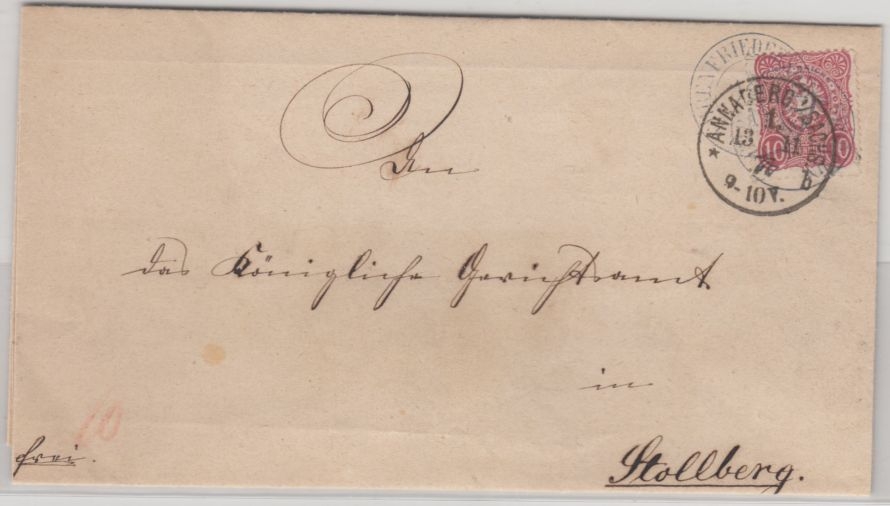 An
das Königliche Gerichtsamt
in
Stollberg.
frei.
10
ANNABERG SACHSEN
13 11
9-10V.
b
10